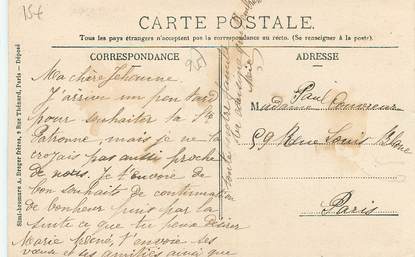 15€
CARTE POSTALE.
Tous les pays étrangers n'acceptent pas la correspondance au recto. (Se renseigner à la poste).
CORRESPONDANCE
ADRESSE
Simi-bromure A. Breger frères, 9 Rue Thénard, Paris — Déposé
Ma chère Jehanne
J'arrive un peu tard
pour souhaiter la Ste
Patronne, mais je ne la
croyais pas aussi proche
de nous. Je t'envoie de
bon souhait de continuation
de bonheur puis par la
suite ce que tu peux désirer
Marie t'envoie ses
vœux et ses amitiés ainsi que
toute notre famille
Madame Paul
59 Rue Louis Blanc
Paris